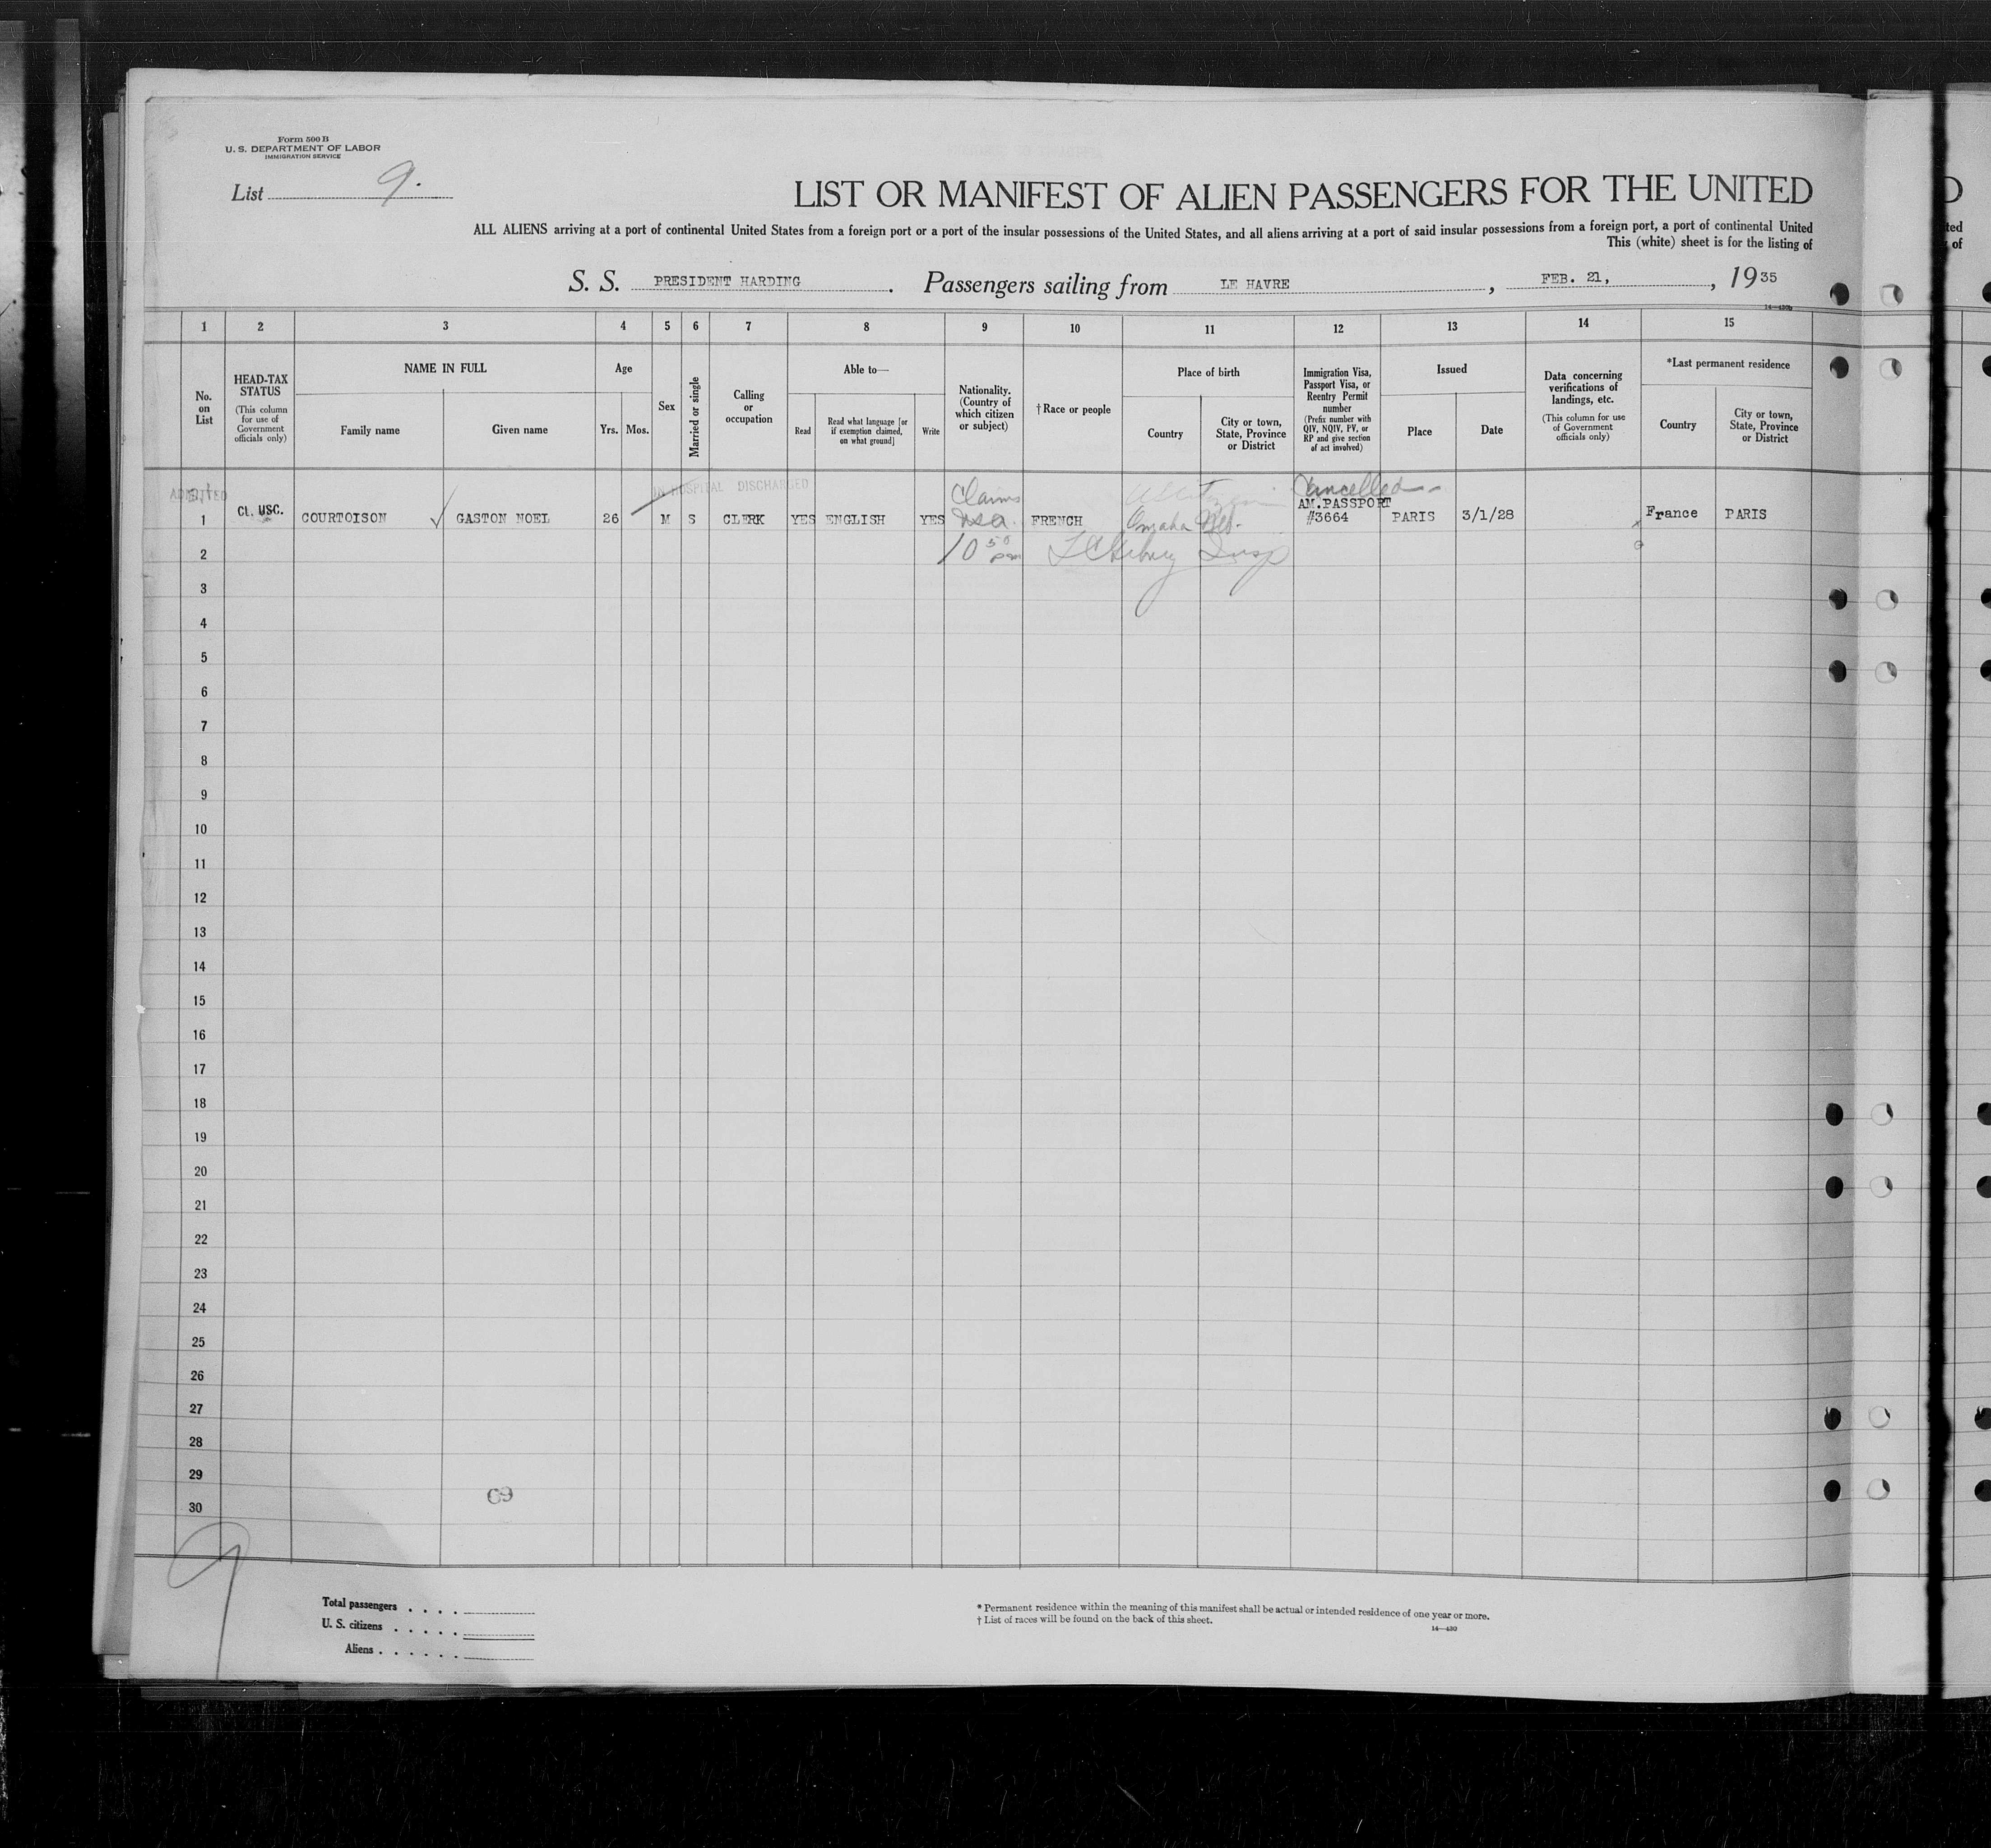 Form 500 B
U. S. DEPARTMENT OF LABOR
IMMIGRATION SERVICE
List 9.
LIST OR MANIFEST OF ALIEN PASSENGERS FOR THE UNITED
ALL ALIENS arriving at a port of continental United States from a foreign port or a port of the insular possessions of the United States, and all aliens arriving at a port of said insular possessions from a foreign port, a port of continental United
This (white) sheet is for the listing of
S. S. PRESIDENT HARDING. Passengers sailing from LE HAVRE, FEB. 21, , 1935
1 2 3 4 5 6 7 8 9 10 11 12 13 14 15
No. on List
HEAD-TAX STATUS (This column for use of Government officials only)
NAME IN FULL
Family name
Given name
Age
Yrs. Mos.
Sex
Married or single
Calling or occupation
Able to—
Read
Read what language [or if exemption claimed, on what ground]
Write
Nationality. (Country of which citizen or subject)
†Race or people
Place of birth
Country
City or town, State, Province or District
Immigration Visa, Passport Visa, or Reentry Permit number (Prefix number with QIV, NQIV, PV, or RP and give section of act involved)
Issued
Place
Date
Data concerning verifications of landings, etc. (This column for use of Government officials only)
*Last permanent residence
Country
City or town, State, Province or District
ADMITTED IN HOSPITAL DISCHARGED Claims Cancelled
1 Ct. USC. COURTOISON GASTON NOEL 26 M S CLERK YES ENGLISH YES USA FRENCH Omaha Neb. AM.PASSPORT #3664 PARIS 3/1/28 France PARIS
2 10 50 pm Insp
3
4
5
6
7
8
9
10
11
12
13
14
15
16
17
18
19
20
21
22
23
24
25
26
27
28
29
30
69
9
Total passengers . . . .
U. S. citizens . . . . .
Aliens . . . . . .
* Permanent residence within the meaning of this manifest shall be actual or intended residence of one year or more.
† List of races will be found on the back of this sheet.
14—430